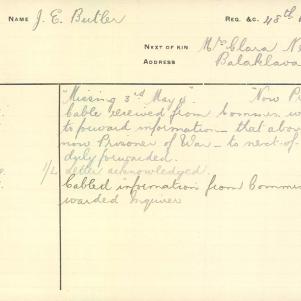 NAME J. E. Butler REG. &C. 48th
NEXT OF KIN Mrs Clara
ADDRESS Balaklava
"Missing 3rd May". Now
Cable received from
to forward information - that
now Prisoner of War - to next-of
duly forwarded.
1/L Letter acknowledged.
Cabled information from
warded Inquirer